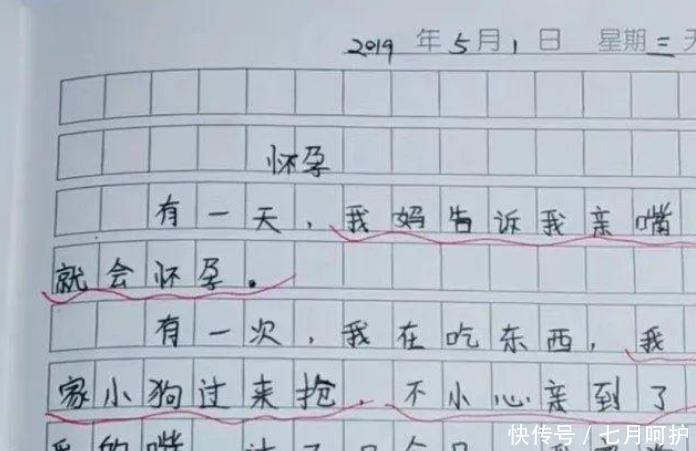 2019 年 5 月 1 日 星期 三 天
怀孕
有一天，我妈告诉我亲嘴
就会怀孕。
有一次，我在吃东西，我
家小狗过来抢，不小心亲到了
的嘴
快传号／七月呵护